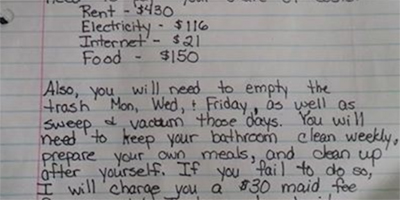 Rent - $430
Electricity - $116
Internet - $21
Food - $150
Also, you will need to empty the
trash Mon, Wed, + Friday, as well as
sweep & vacuum those days. You will
need to keep your bathroom clean weekly,
prepare your own meals, and clean up
after yourself. If you fail to do so,
I will charge you a $30 maid fee